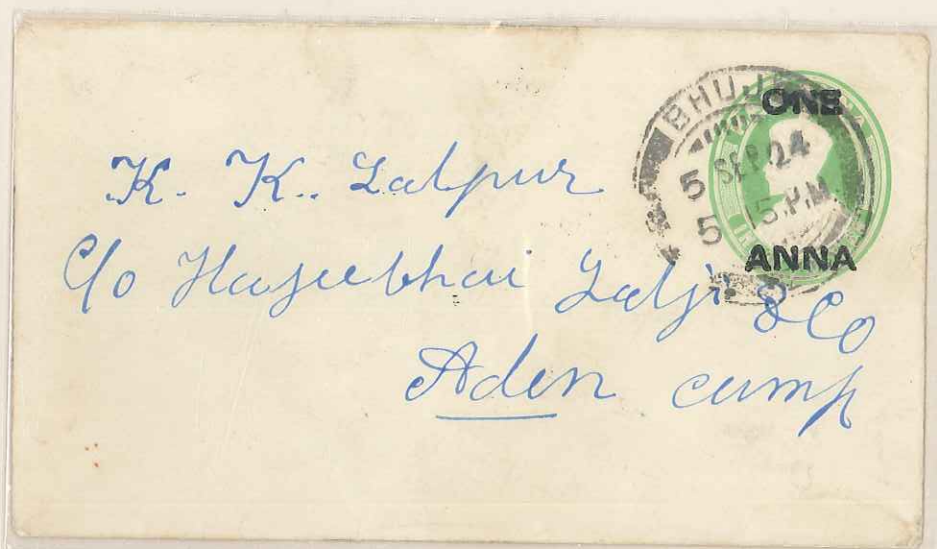 BHUJ
ONE
5 SEP 24
5 15 P.M.
ANNA
K. K. Lalpur
C/o Hajeebhai Lalji & Co
Aden camp